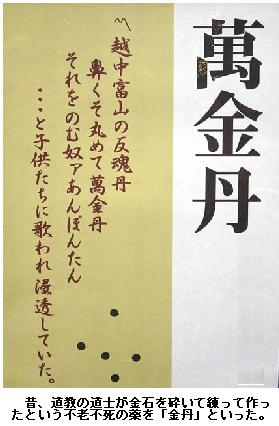 萬金丹
〽越中富山の反魂丹
鼻くそ丸めて萬金丹
それをのむ奴ァあんぽんたん
・・・と子供たちに歌われ浸透していた。
昔、道教の道士が金石を砕いて練って作っ
たという不老不死の薬を「金丹」といった。